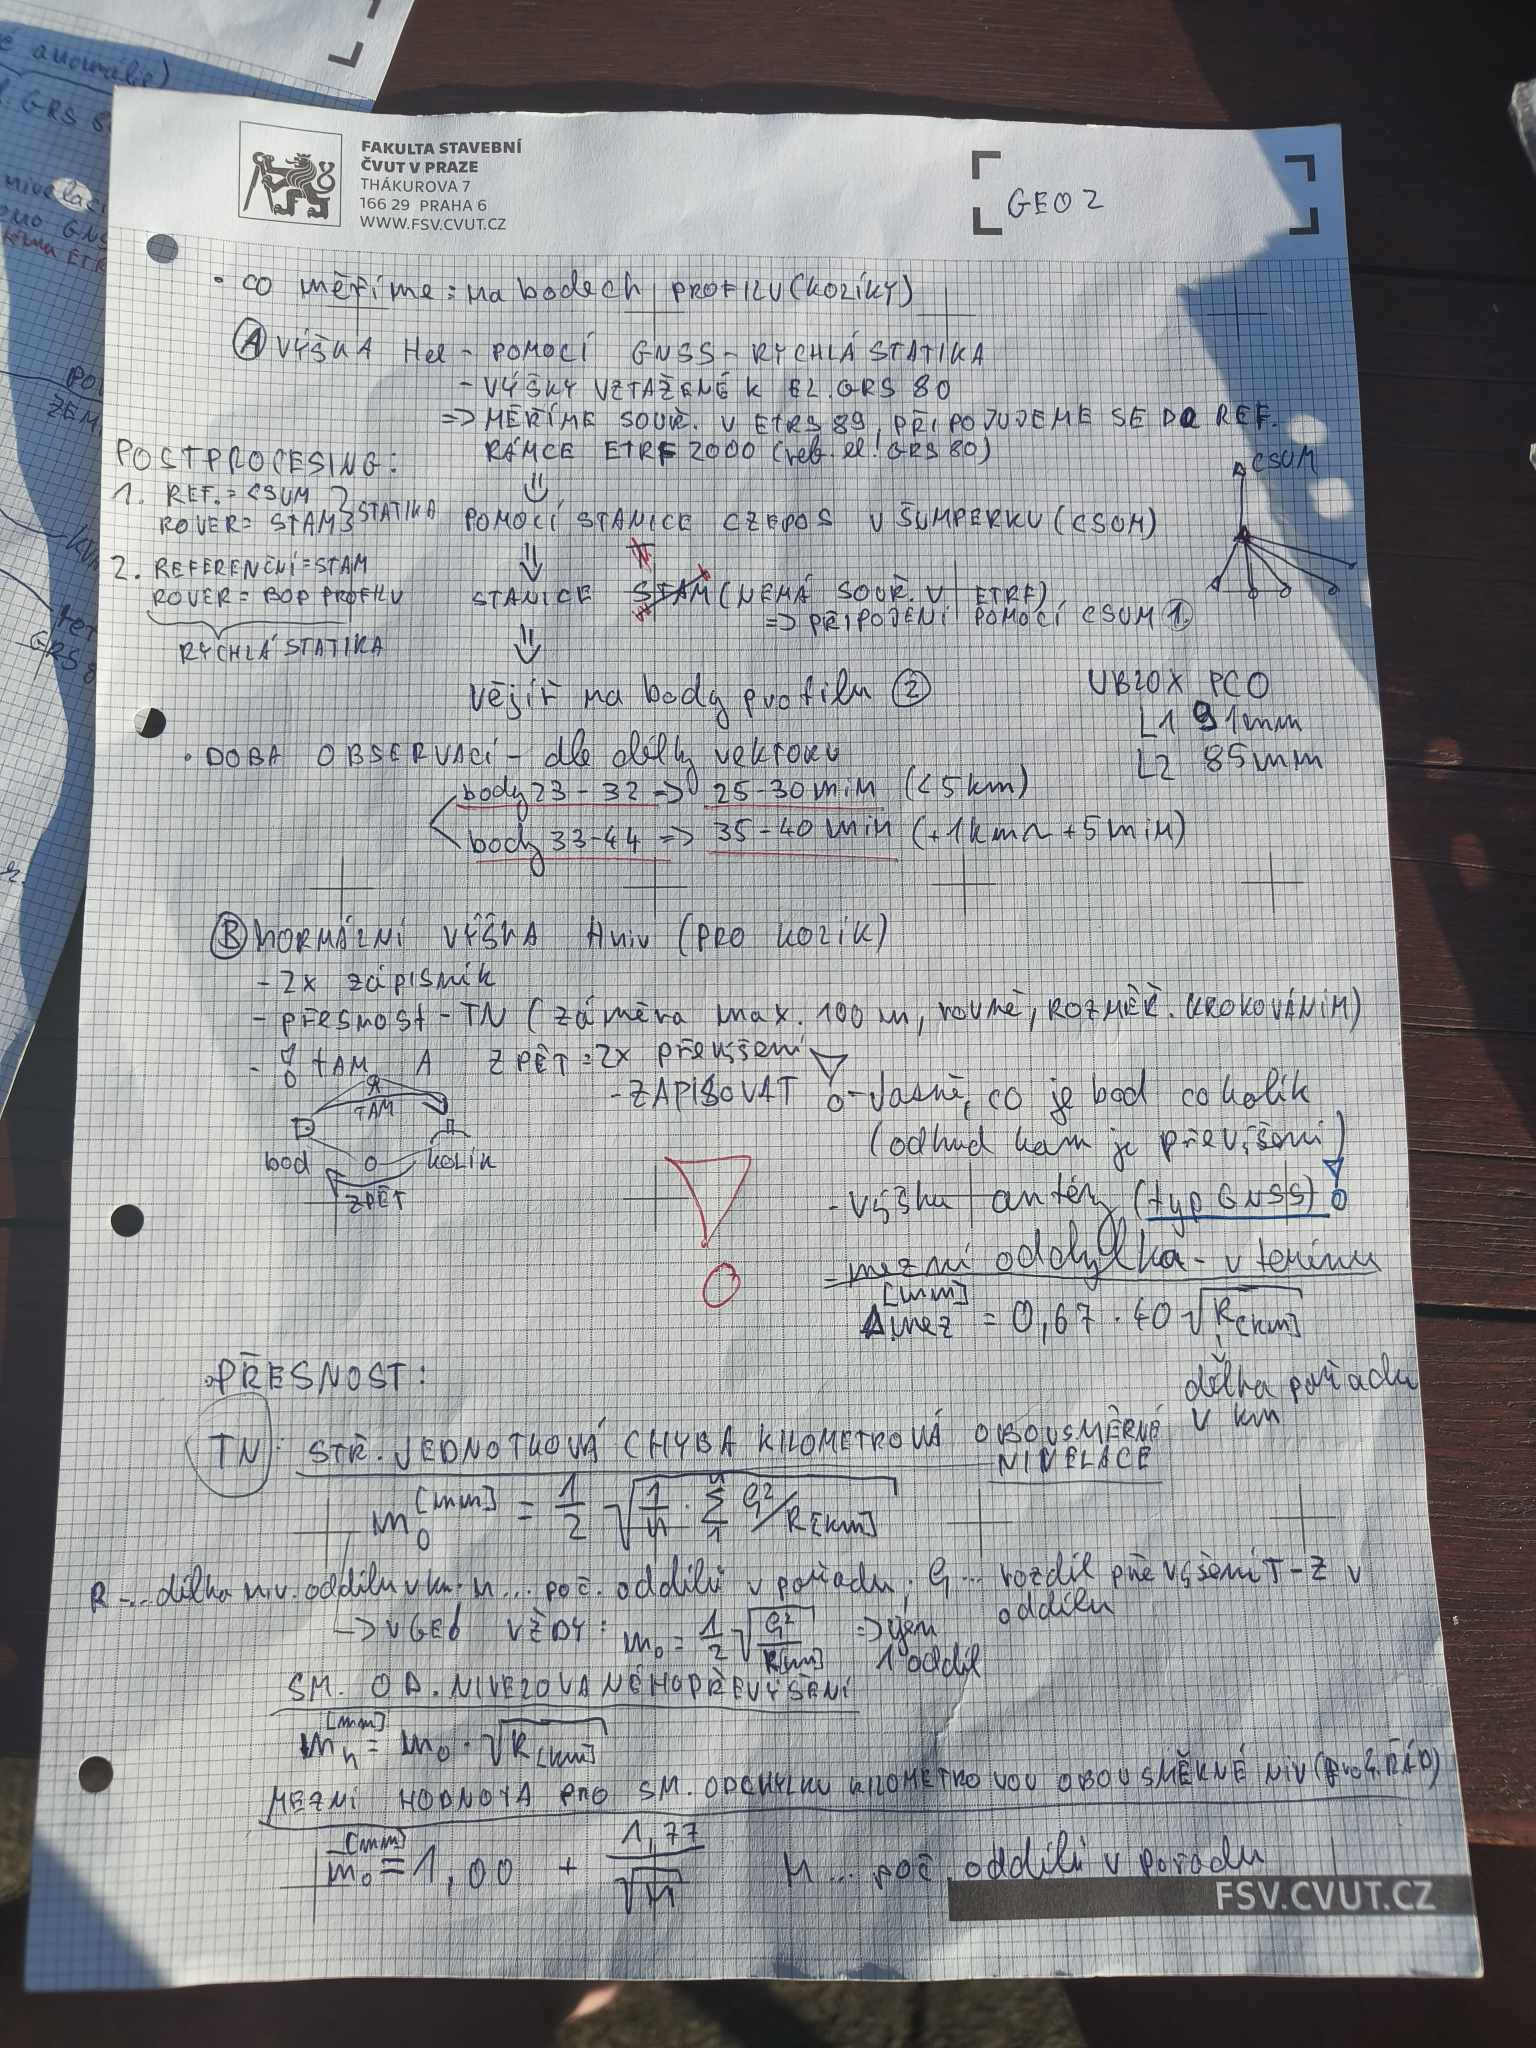 FAKULTA STAVEBNÍ
ČVUT V PRAZE
THÁKUROVA 7
166 29 PRAHA 6
WWW.FSV.CVUT.CZ
GEO 2
• CO MĚŘÍME: na bodech PROFILU (KOLÍKY)
Ⓐ VÝŠKA Hel - POMOCÍ GNSS - RYCHLÁ STATIKA
- VÝŠKY VZTAŽENÉ K EL. GRS 80
=> MĚŘÍME SOUŘ. V ETRS 89, PŘIPOJUJEME SE DO REF.
RÁMCE ETRF 2000 (ref. el. GRS 80)
POSTPROCESING:
1. REF. = CSUM
ROVER = STAM } STATIKA
POMOCÍ STANICE CZEPOS V ŠUMPERKU (CSUM)
CSUM
2. REFERENČNÍ = STAM
ROVER = BOD PROFILU
RYCHLÁ STATIKA
STANICE STAM (NEMÁ SOUŘ. V ETRF)
=> PŘIPOJENÍ POMOCÍ CSUM 1.
Vějíř na body profilu ②
UBLOX PCO
L1 91mm
L2 85mm
• DOBA OBSERVACÍ - dle délky vektoru
body 23 - 32 => 25-30 min (< 5km)
body 33-44 => 35-40 min (+1km ~ +5min)
Ⓑ NORMÁLNÍ VÝŠKA Hniv (PRO KOLÍK)
- 2x zápisník
- přesnost - TN (záměra max. 100 m, rovné, ROZMĚŘ. KROKOVÁNÍM)
- TAM A ZPĚT = 2x převýšení
- ZAPISOVAT - Jasně, co je bod co kolík
(odkud kam je převýšení)
TAM
bod
kolík
ZPĚT
- výšku antény (typ GNSS)
- mezní odchylka - v terénu
Δmez [mm] = 0,67 · 40 √R[km]
délka pořadu
v km
• PŘESNOST:
TN: STŘ. JEDNOTKOVÁ CHYBA KILOMETROVÁ OBOUSMĚRNÉ
NIVELACE
m0 [mm] = 1/2 √(1/n · Σ ϱ²/R[km])
R ... délka niv. oddílu v km. n ... poč. oddílů v pořadu, ϱ ... rozdíl převýšení T-Z v
oddílu
-> V GEO VŽDY: m0 = 1/2 √(ϱ²/R[km]) => jen
1 oddíl
SM. OD. NIVELOVANÉHO PŘEVÝŠENÍ
mh [mm] = m0 · √R[km]
MEZNÍ HODNOTA PRO SM. ODCHYLKU KILOMETROVOU OBOUSMĚRNÉ NIV (pro ŘÁD)
m0 [mm] = 1,00 + 1,77/√n n ... poč. oddílů v pořadu
FSV.CVUT.CZ